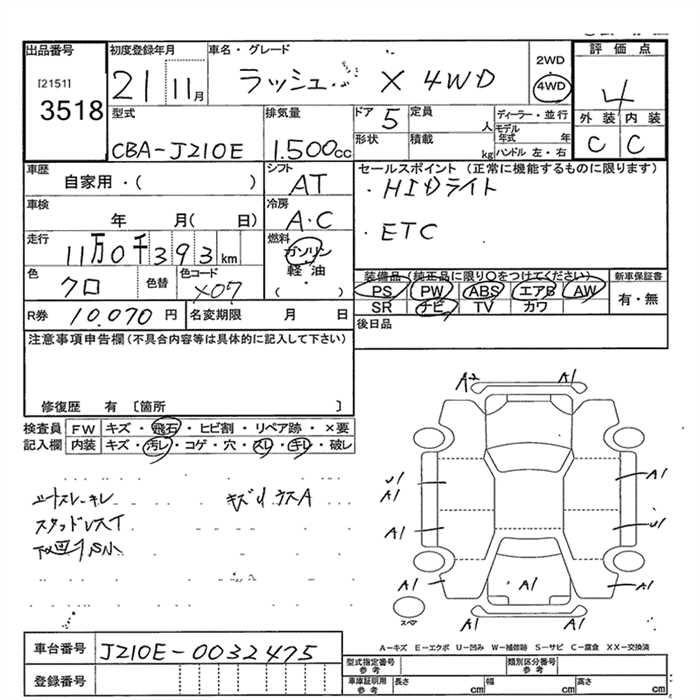 出品番号
[2151]
3518
初度登録年月
21 11月
車名・グレード
ラッシュ X 4WD
2WD
4WD
評価点
4
外装 内装
C C
型式
CBA-J210E
排気量
1.500cc
ドア 5
定員
人
形状
積載
kg
ディーラー・並行
モデル年式 年
ハンドル 左・右
車歴
自家用・( )
シフト
AT
セールスポイント(正常に機能するものに限ります)
・HIDライト
・ETC
車検
年 月( 日)
冷房
A・C
走行
11万0千393km
燃料
ガソリン
軽油
・
( )
色
クロ
色替
色コード
X07
装備品(純正品に限り○をつけてください)
PS PW ABS エアB AW
SR ナビ TV カワ
新車保証書
有・無
R券 10,070円
名変期限 月 日
後日品
注意事項申告欄(不具合内容等は具体的に記入して下さい)
修復歴 有 〔箇所 〕
検査員記入欄
FW キズ・飛石・ヒビ割・リペア跡・×要
内装 キズ・汚レ・コゲ・穴・スレ・キレ・破レ
スタッドレス
キズ
A2 A1
U1
A1
A1
A1
A1
U1
A1
A1
A1
スペア
A1
A−キズ E−エクボ U−凹み W−補修跡 S−サビ C−腐食 XX−交換済
車台番号
J210E-0032475
登録番号
型式指定番号 参考
類別区分番号 参考
車庫証明用 参考
長さ cm
幅 cm
高さ cm